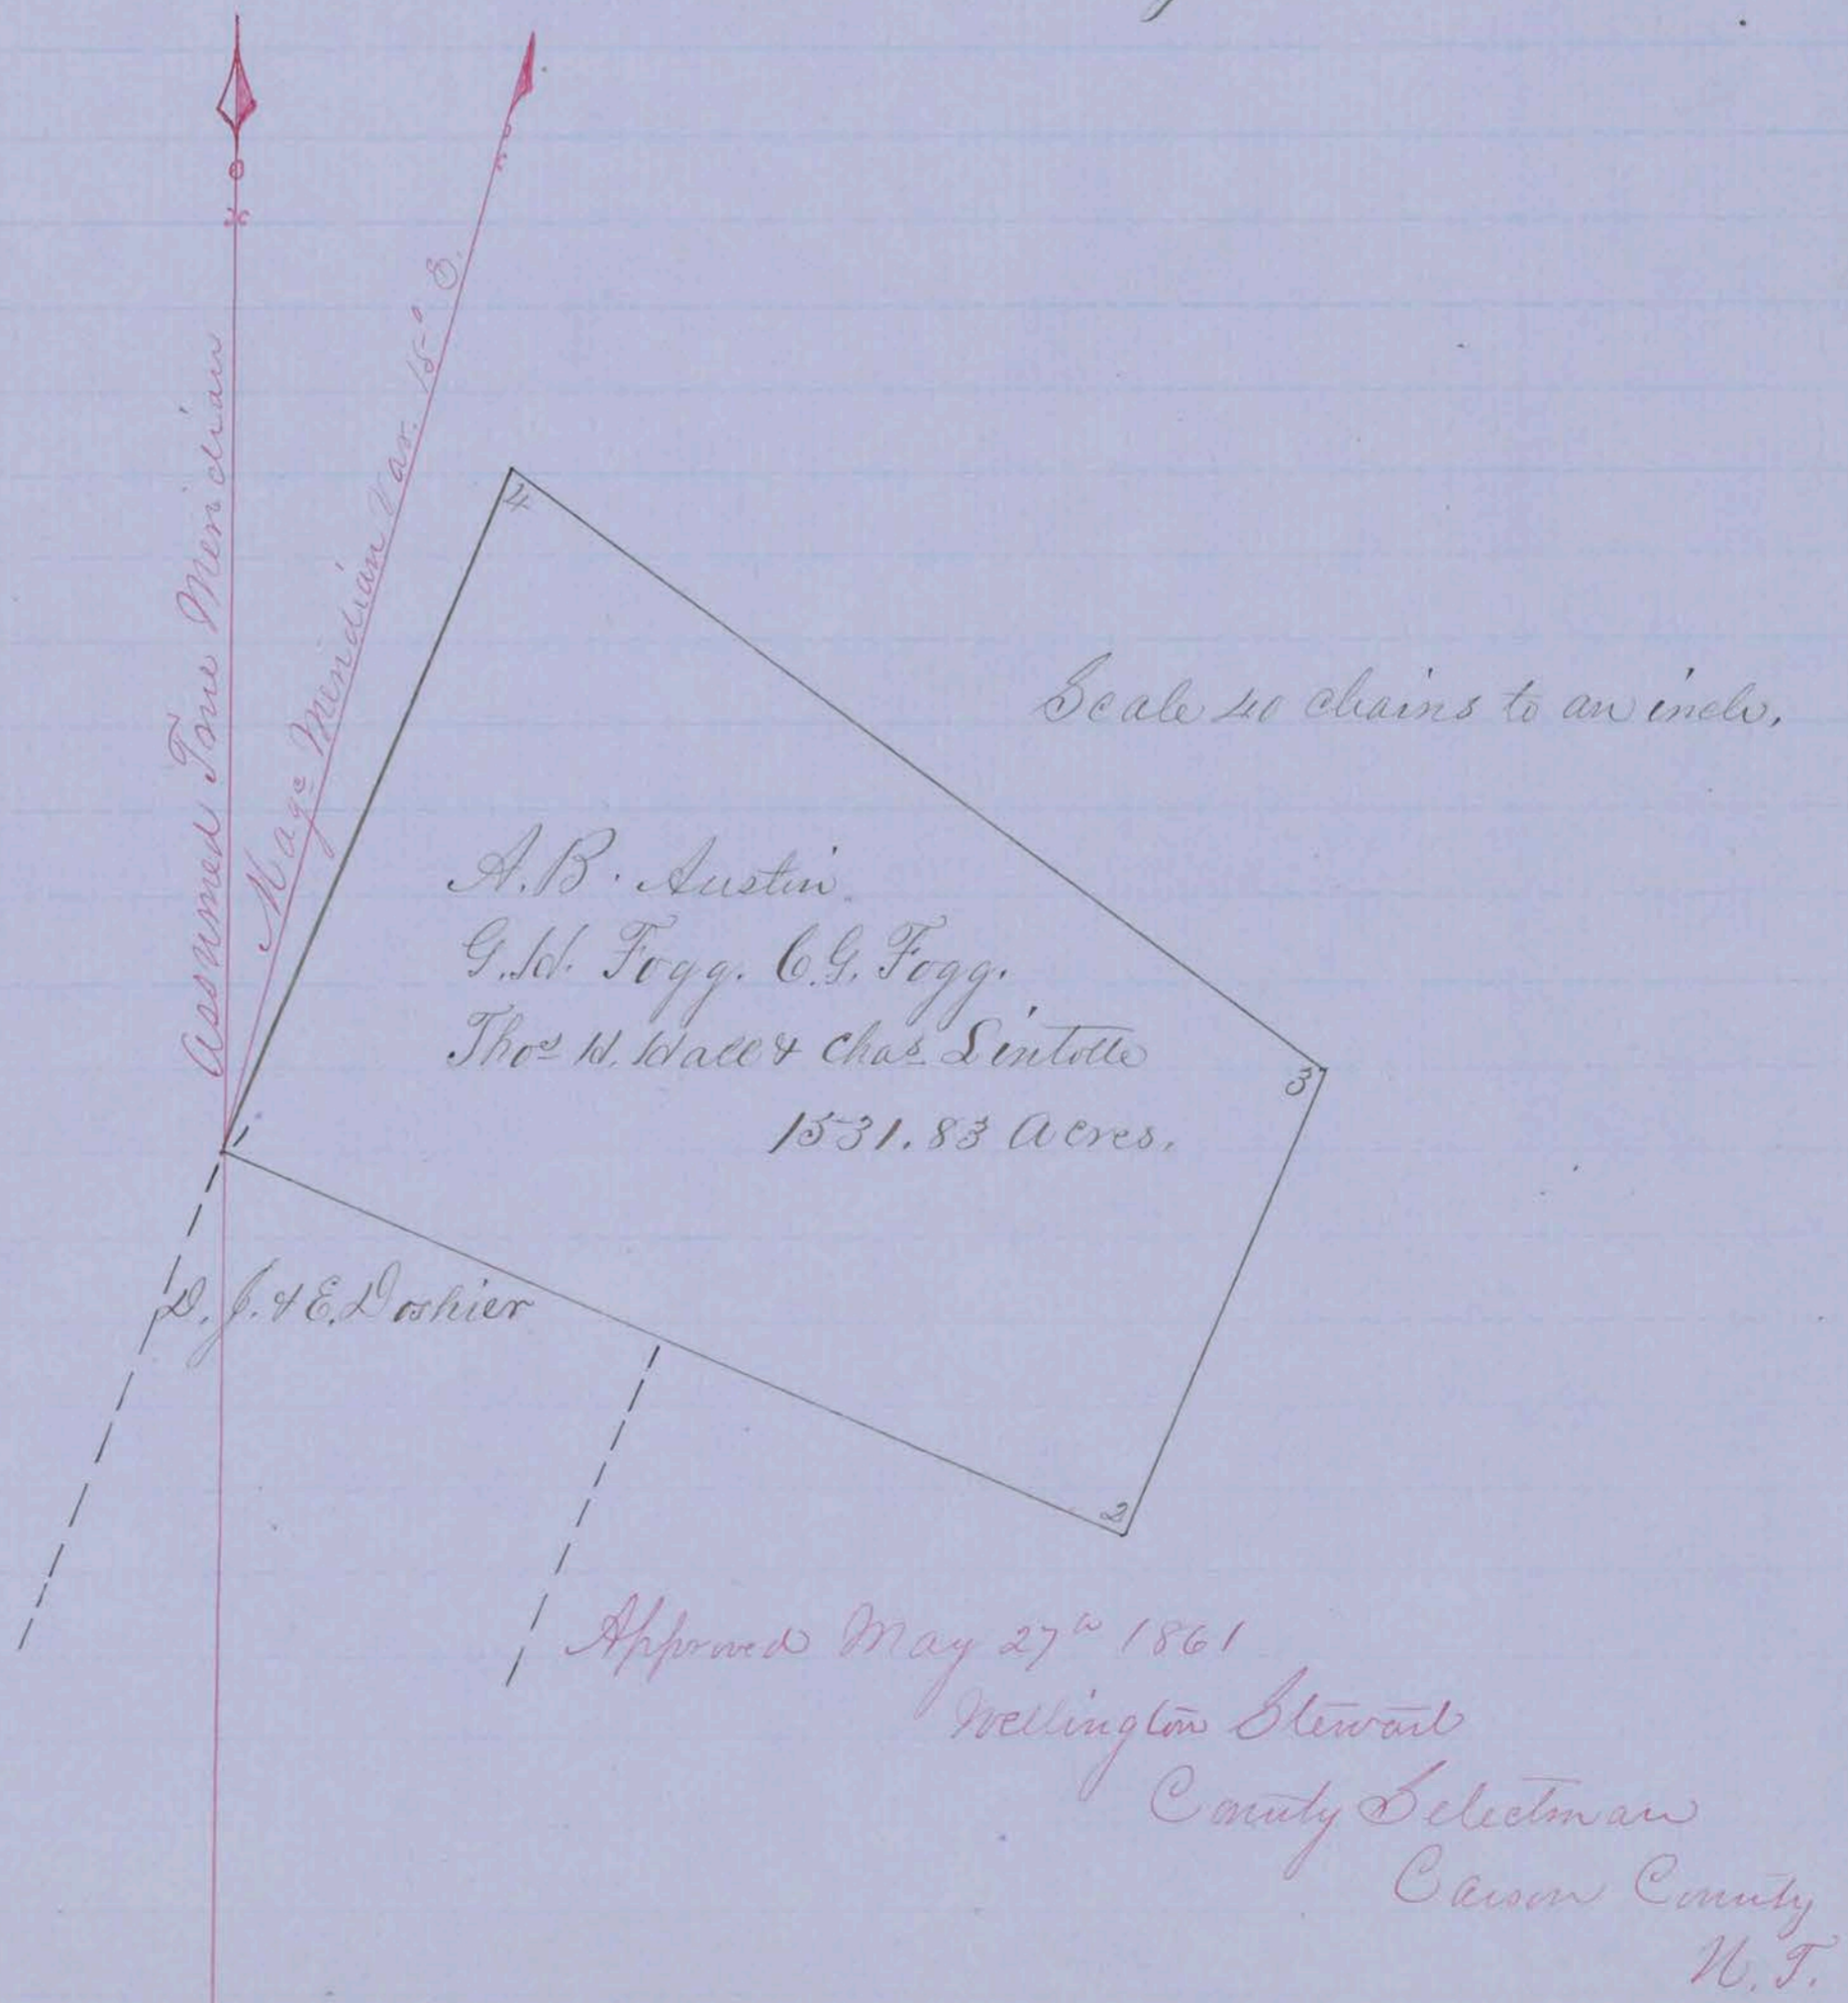 Assumed True Meridian
Magc Meridian Var. 15° E.
4
Scale 40 chains to an inch.
A. B. Austin.
G. H. Fogg. C. G. Fogg.
Thos H. Hall & Chas
1531.83 Acres.
3
D. J. & E. Doshier
2
Approved May 27th 1861
Wellington Stewart
County Selectman
Carson County
U. T.